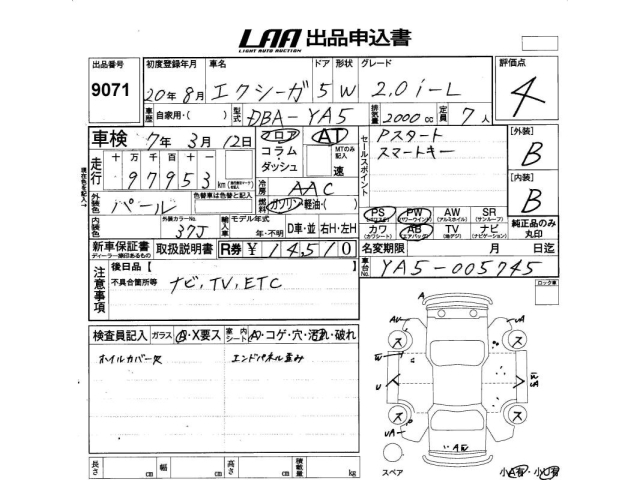 LAA 出品申込書
LIGHT AUTO AUCTION
出品番号 9071
初度登録年月 車名 ドア 形状 グレード 評価点
20年8月 エクシーガ 5 W 2.0 i-L 4
車歴 自家用・( ) 型式 DBA-YA5 排気量 2000 cc 定員 7 人
車検 7年 3月 12日 フロア コラム・ダッシュ AT MTのみ記入 速
セールスポイント Pスタート
スマートキー
[外装] B
[内装] B
走行 十万 万 千 百 十
97953 km
冷房 AAC
外装色 パール 色替車は色替と記入
燃料 ガソリン・軽油・( )
内装色 外装カラーNo. 37J
輸入車 モデル年式 年・不明 D車・並 右H・左H
PS PW AW SR
(パワステ) (パワーウインド) (アルミホイル) (サンルーフ)
カワ AB TV ナビ
(カワシート) (エアバッグ) (地デジ) (ナビゲーション)
純正品のみ丸印
新車保証書 取扱説明書 R券 ¥14510
ディーラー捺印あるもの
名変期限 月 日迄
車台No. YA5-005745
注意事項 後日品【
不具合箇所等 ナビ,TV,ETC
ロック車
検査員記入 ガラス A・X要ス 室内シート A・コゲ・穴・汚れ・破れ
ホイルカバー欠 エンドパネル歪み
A
AU UA
ス ス
W
U UA
ス ス
UA P
AW
スペア
小A有・小U有
長さ cm 幅 cm 高さ cm 積載量 kg